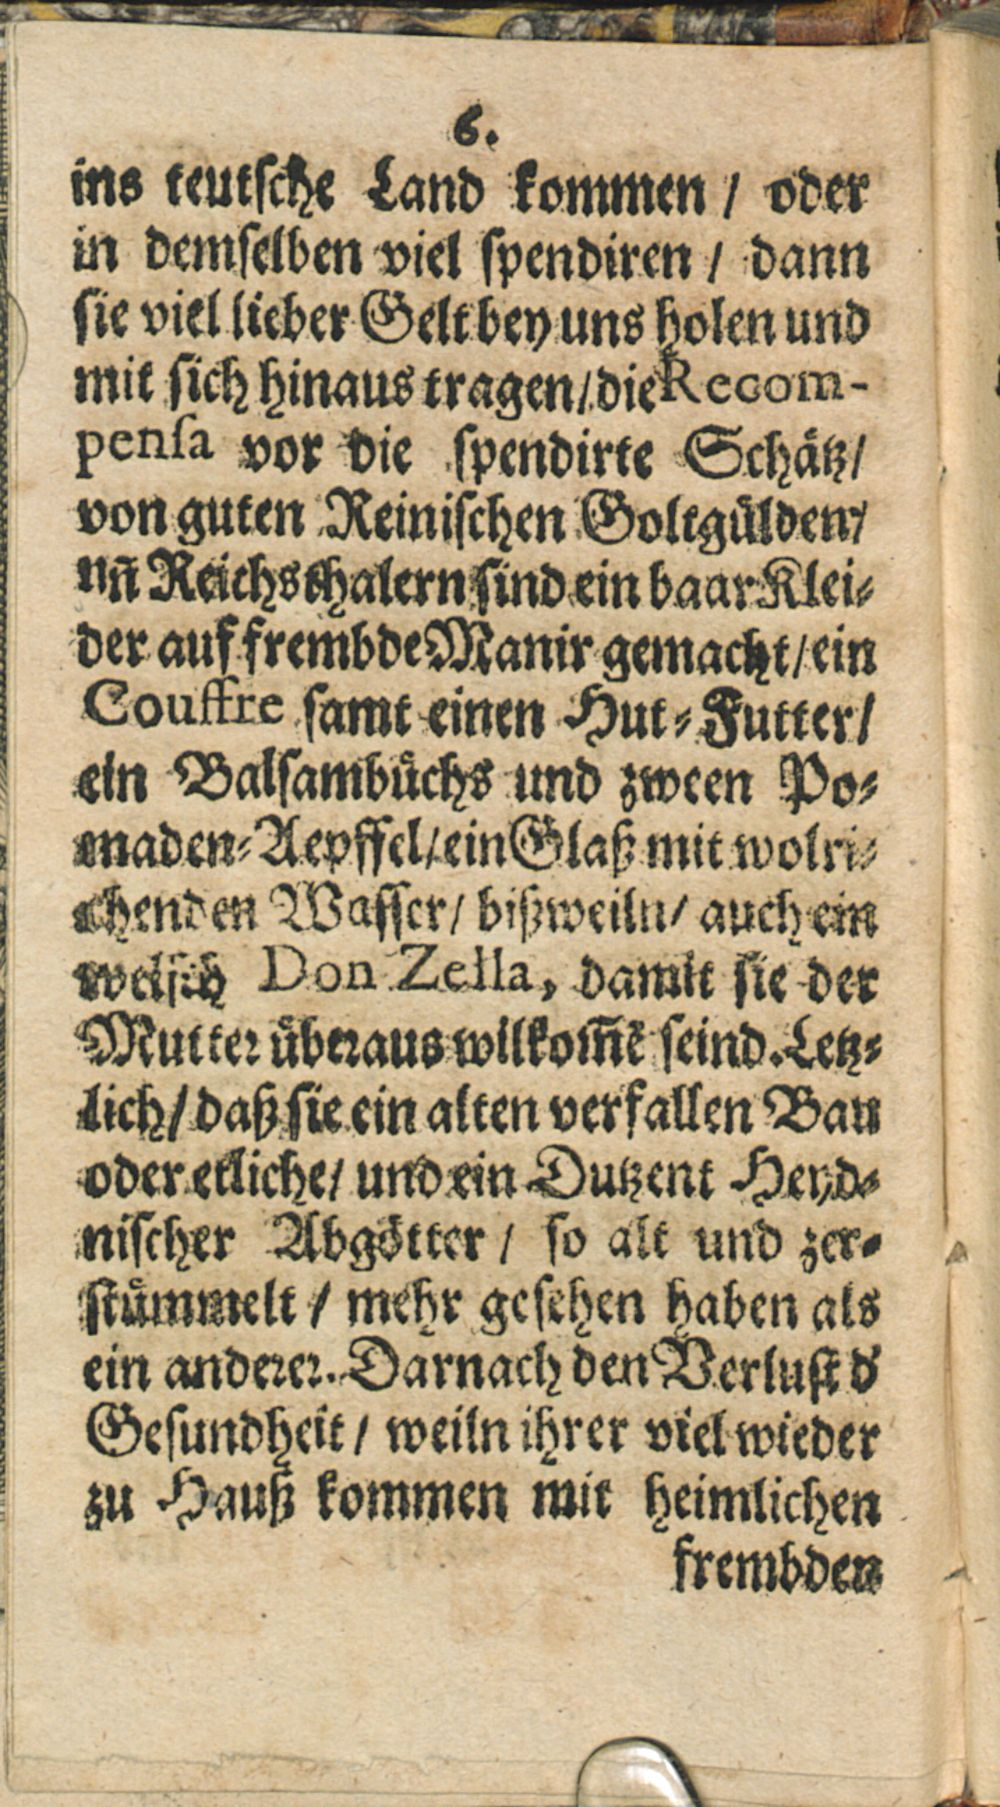 6.
ins teutsche Land kommen / oder
in demselben viel spendiren / dann
sie viel lieber Gelt bey uns holen und
mit sich hinaus tragen / die Recom-
pensa vor die spendirte Schätz /
von guten Reinischen Goltgülden /
uñ Reichsthalern sind ein baar Klei-
der auf frembde Manir gemacht / ein
Couffre samt einen Hut-Futter /
ein Balsambüchs und zween Po-
maden-Aepffel / ein Glaß mit wolri-
chenden Wasser / bißweiln / auch ein
welsch Don Zella, damit sie der
Mutter überaus wilkom̃ẽ seind. Letz-
lich / daß sie ein alten verfallen Bau
oder etliche / und ein Dutzent Heyd-
nischer Abgötter / so alt und zer-
stümmelt / mehr gesehen haben als
ein anderer. Darnach den Verlust d'
Gesundheit / weiln ihrer viel wieder
zu Hauß kommen mit heimlichen
frembden